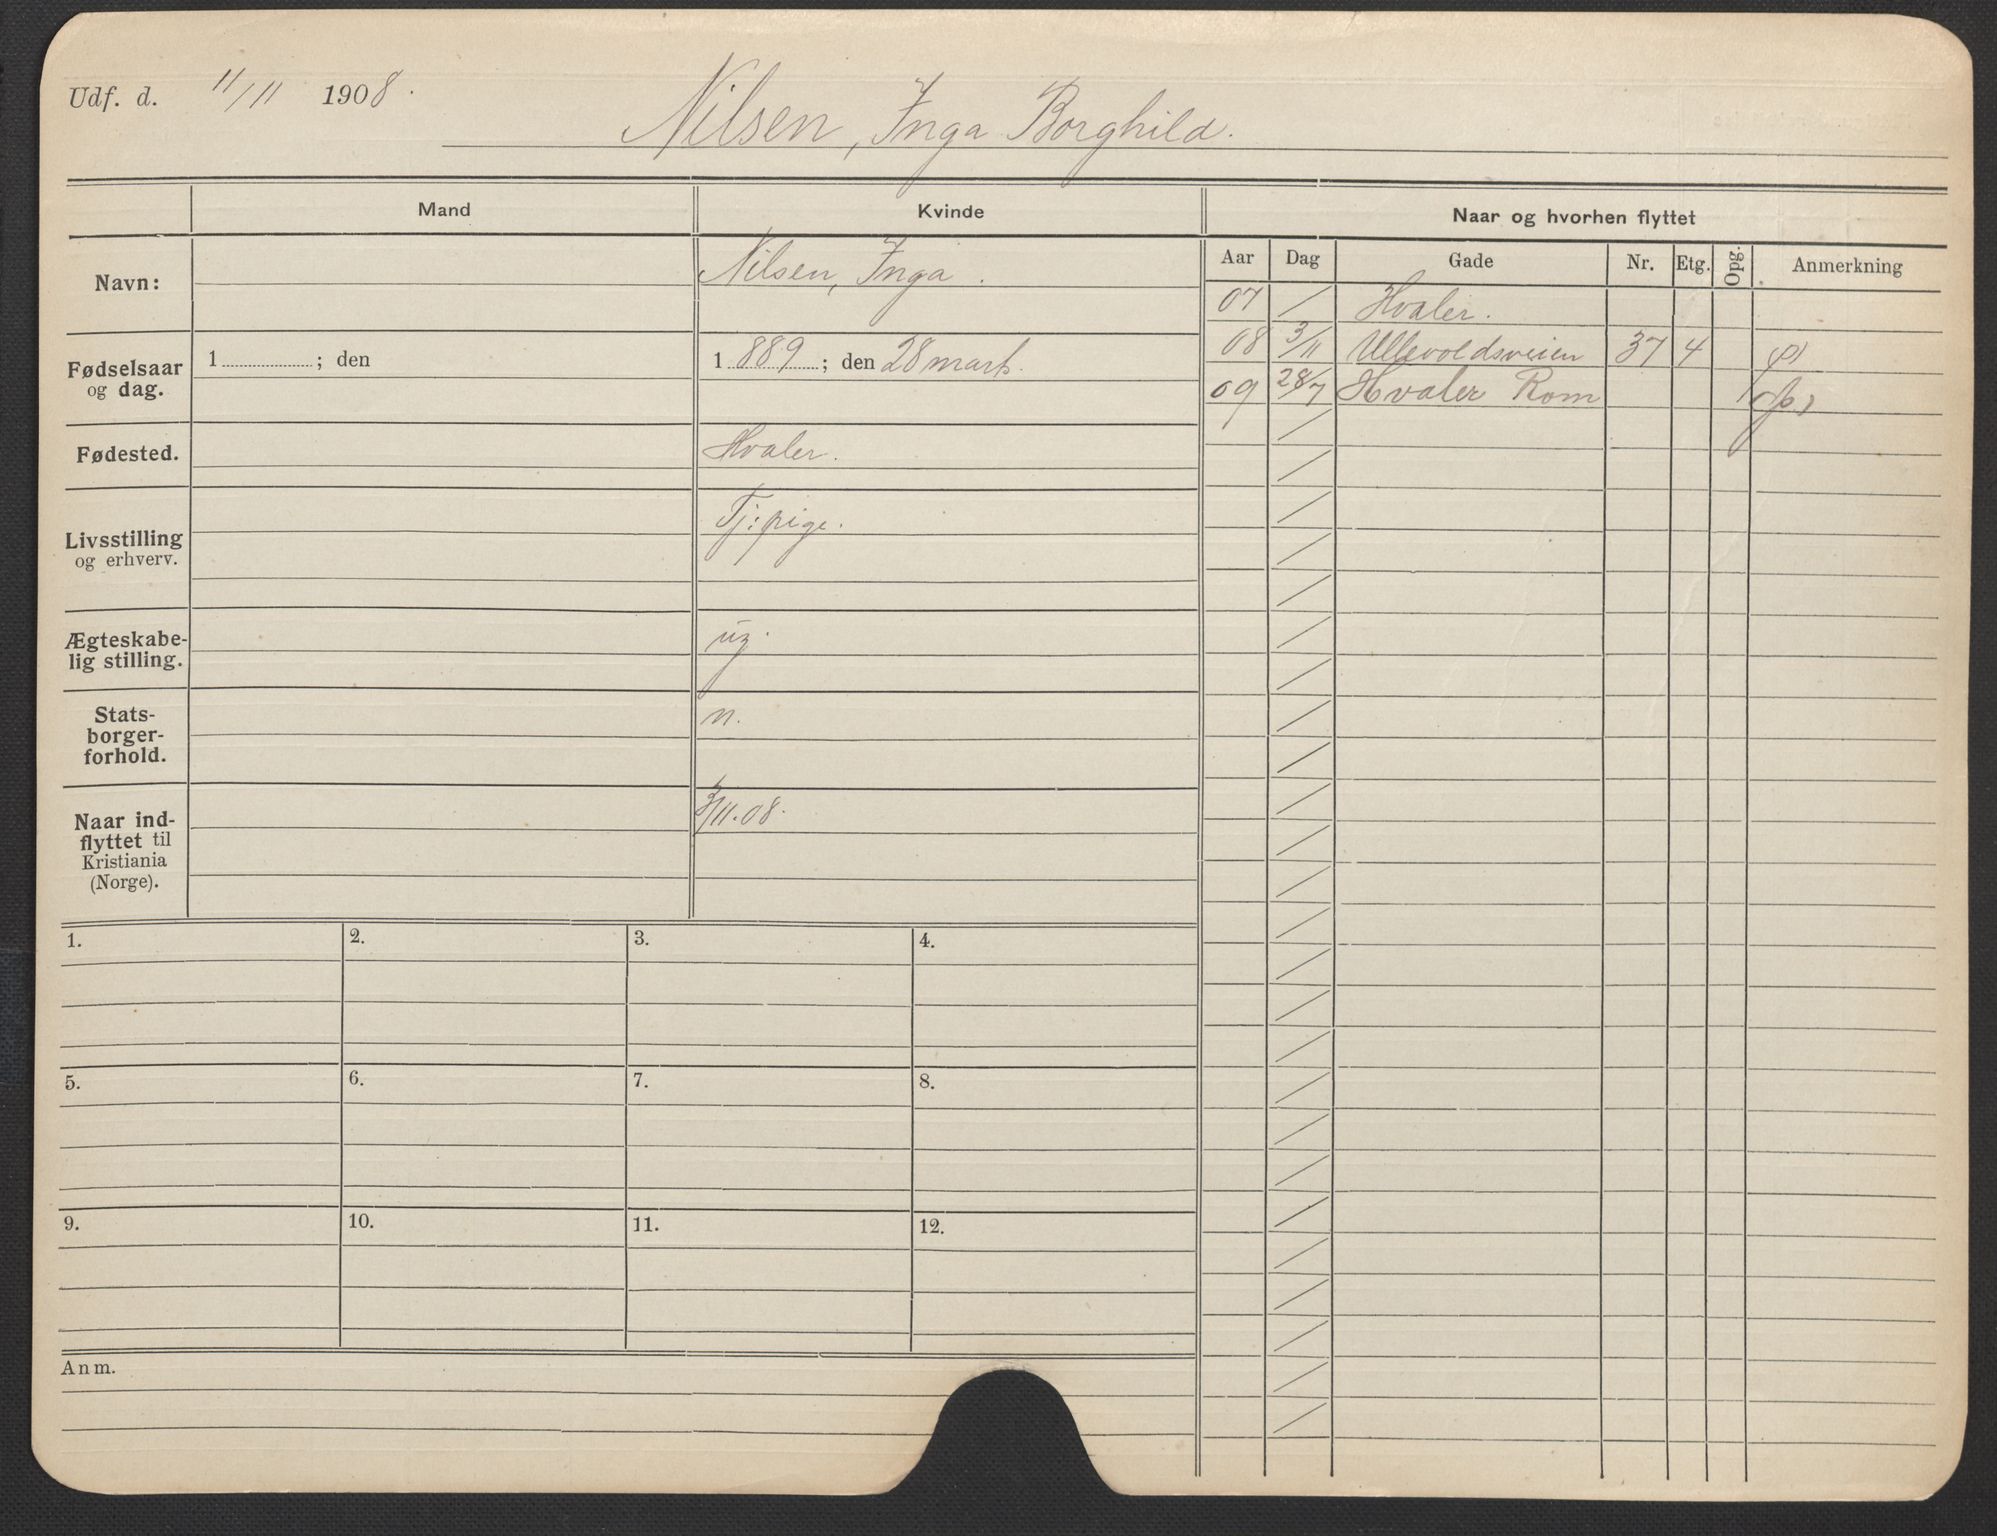 Udf. d. 11/11 1908.
Nilsen, Inga Borghild.
Mand
Kvinde
Naar og hvorhen flyttet
Navn:
Nilsen, Inga.
Fødselsaar og dag.
1 ; den
1 889 ; den 28 marts.
Fødested.
Hvaler.
Livsstilling og erhverv.
Tj:pige.
Ægteskabe-
lig stilling.
ug.
Stats-
borger-
forhold.
n.
Naar ind-
flyttet til
Kristiania
(Norge).
3/11.08.
Aar Dag Gade Nr. Etg. Opg. Anmerkning
07 / Hvaler.
08 3/11 Ullevoldsveien 37 4
09 28/7 Hvaler Rom
1. 2. 3. 4.
5. 6. 7. 8.
9. 10. 11. 12.
Anm.